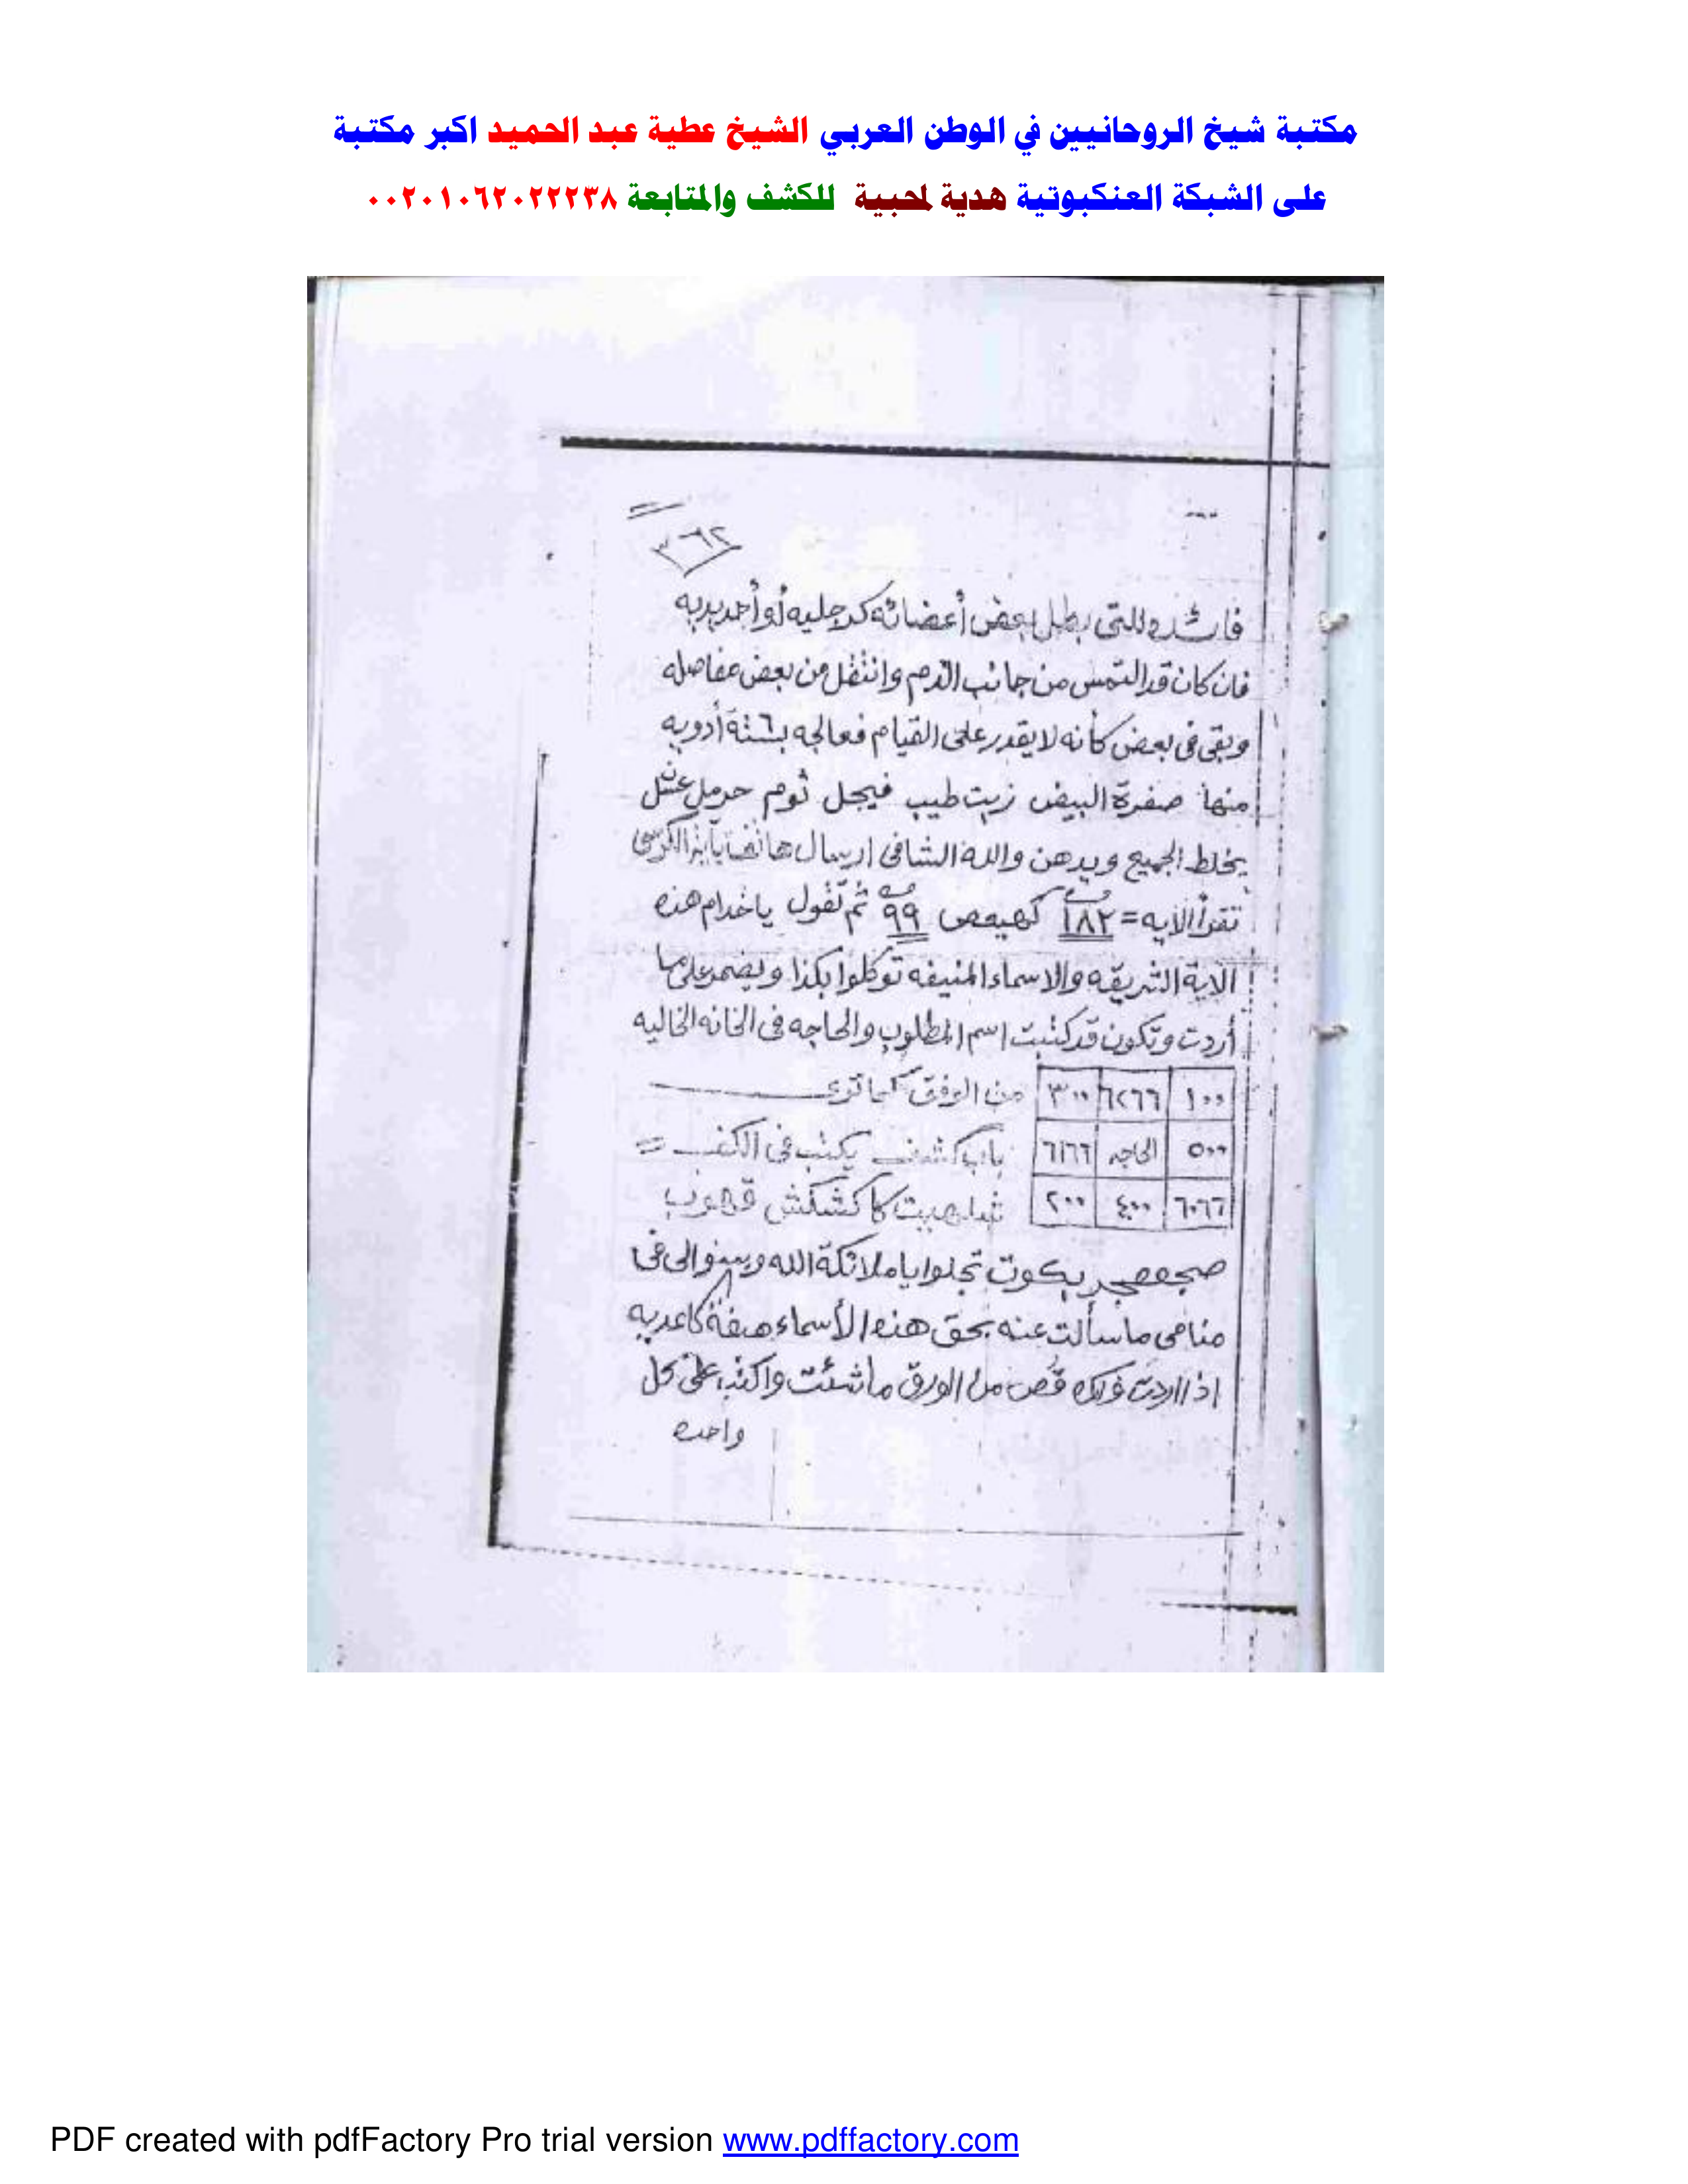 مكتبة شيخ الروحانيين في الوطن العربي الشيخ عطية عبد الحميد اكبر مكتبة
على الشبكة العنكبوتية هدية لمحبية للكشف والمتابعة ٠٠٢٠١٠٦٢٠٢٢٢٣٨
٣٦٢
فائده للتى بطل بعض أعضائه كرجليه أو أحد يديه
فان كان قد التمس من جانب الدم وانتقل من بعض مفاصله
وبقى فى بعض كأنه لا يقدر على القيام فعالجه بستة أدويه
منها صفرة البيض زيت طيب فيجل ثوم حرمل عسل
يخلط الجميع ويدهن والله الشافى ارسال هاتف بآية الكرسى
تقرأ الآيه = ١٨٢ كهيعص ٩٩ ثم تقول يا خدام هذه
الآية الشريفه والاسماء المنيفه توكلوا بكذا ويضمر على ما
أردت وتكون قد كتبت اسم المطلوب والحاجه فى الخانه الخاليه
١٠٠ ٦٢٦٦ ٣٠٠ من الوفق كما ترى
٥٠٠ الحاجه ٦١٦٦ باب كشف يكتب فى الكف =
٦٠٦٦ ٤٠٠ ٢٠٠ كشكش
تجلوا يا ملائكة الله وبينوا لى فى
منامى ما سألت عنه بحق هذه الأسماء صفة كاعديه
اذا اردت ذلك قص من الورق ما شئت واكتب على كل
واحده
PDF created with pdfFactory Pro trial version www.pdffactory.com